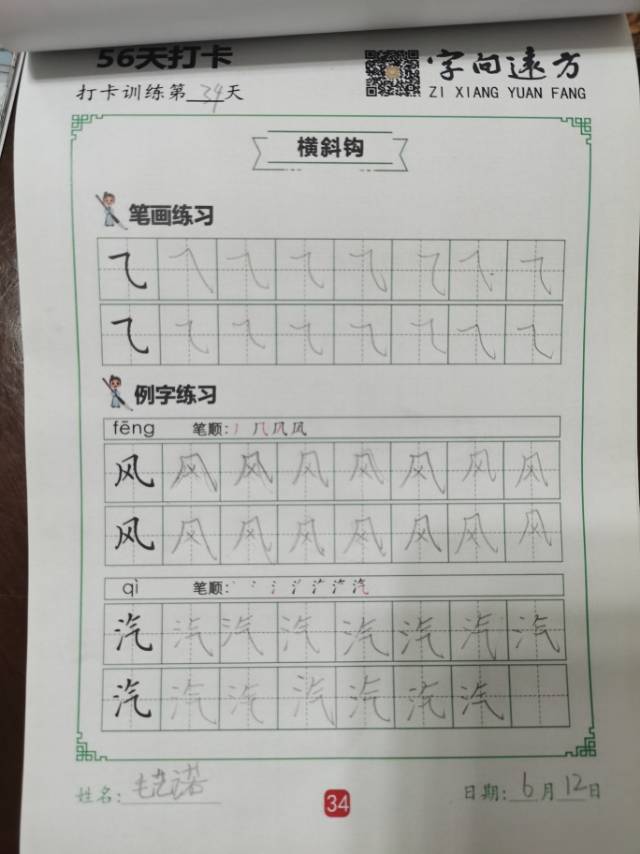 56天打卡
字向远方
打卡训练第34天
ZI XIANG YUAN FANG
横斜钩
笔画练习
㇈ ㇈ ㇈ ㇈ ㇈ ㇈ ㇈ ㇈
㇈ ㇈ ㇈ ㇈ ㇈ ㇈ ㇈ ㇈
例字练习
fēng 笔顺:
风 风 风 风 风 风 风 风
风 风 风 风 风 风 风 风
qì 笔顺:
汽 汽 汽 汽 汽 汽 汽 汽
汽 汽 汽 汽 汽 汽 汽
姓名: 诺
34
日期: 6月12日